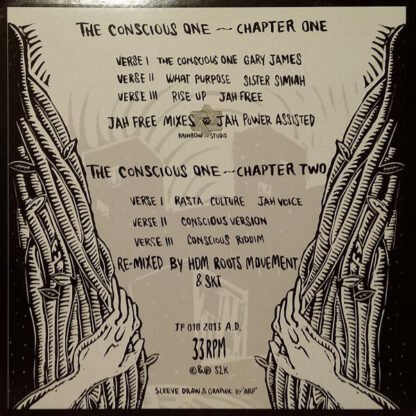 THE CONSCIOUS ONE ~ CHAPTER ONE
VERSE I THE CONSCIOUS ONE GARY JAMES
VERSE II WHAT PURPOSE SISTER SIMIAH
VERSE III RISE UP JAH FREE
JAH FREE MIXES JAH POWER ASSISTED
RAINBOW STUDIO
THE CONSCIOUS ONE ~ CHAPTER TWO
VERSE I RASTA CULTURE JAH VOICE
VERSE II CONSCIOUS VERSION
VERSE III CONSCIOUS RIDDIM
RE-MIXED BY HDM ROOTS MOVEMENT
& SKF
JF 010 2013 A.D.
33 RPM
©&℗ S2K
SLEEVE DRAW & GRAPHIK BY "ARP"